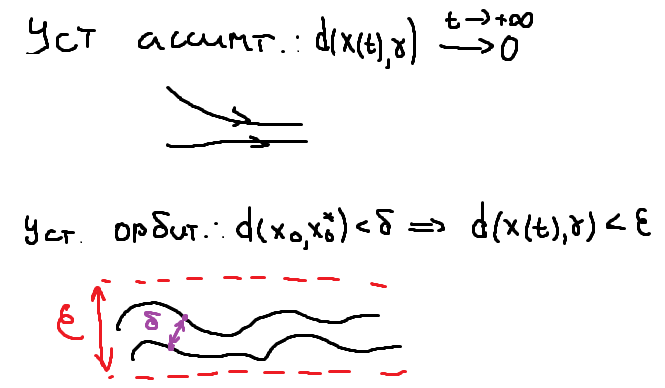 Уст ассимт.: d(x(t),γ) —t→+∞→ 0
Уст. орбит.: d(x₀,x₀*)<δ ⇒ d(x(t),γ)<ε
ε
δ